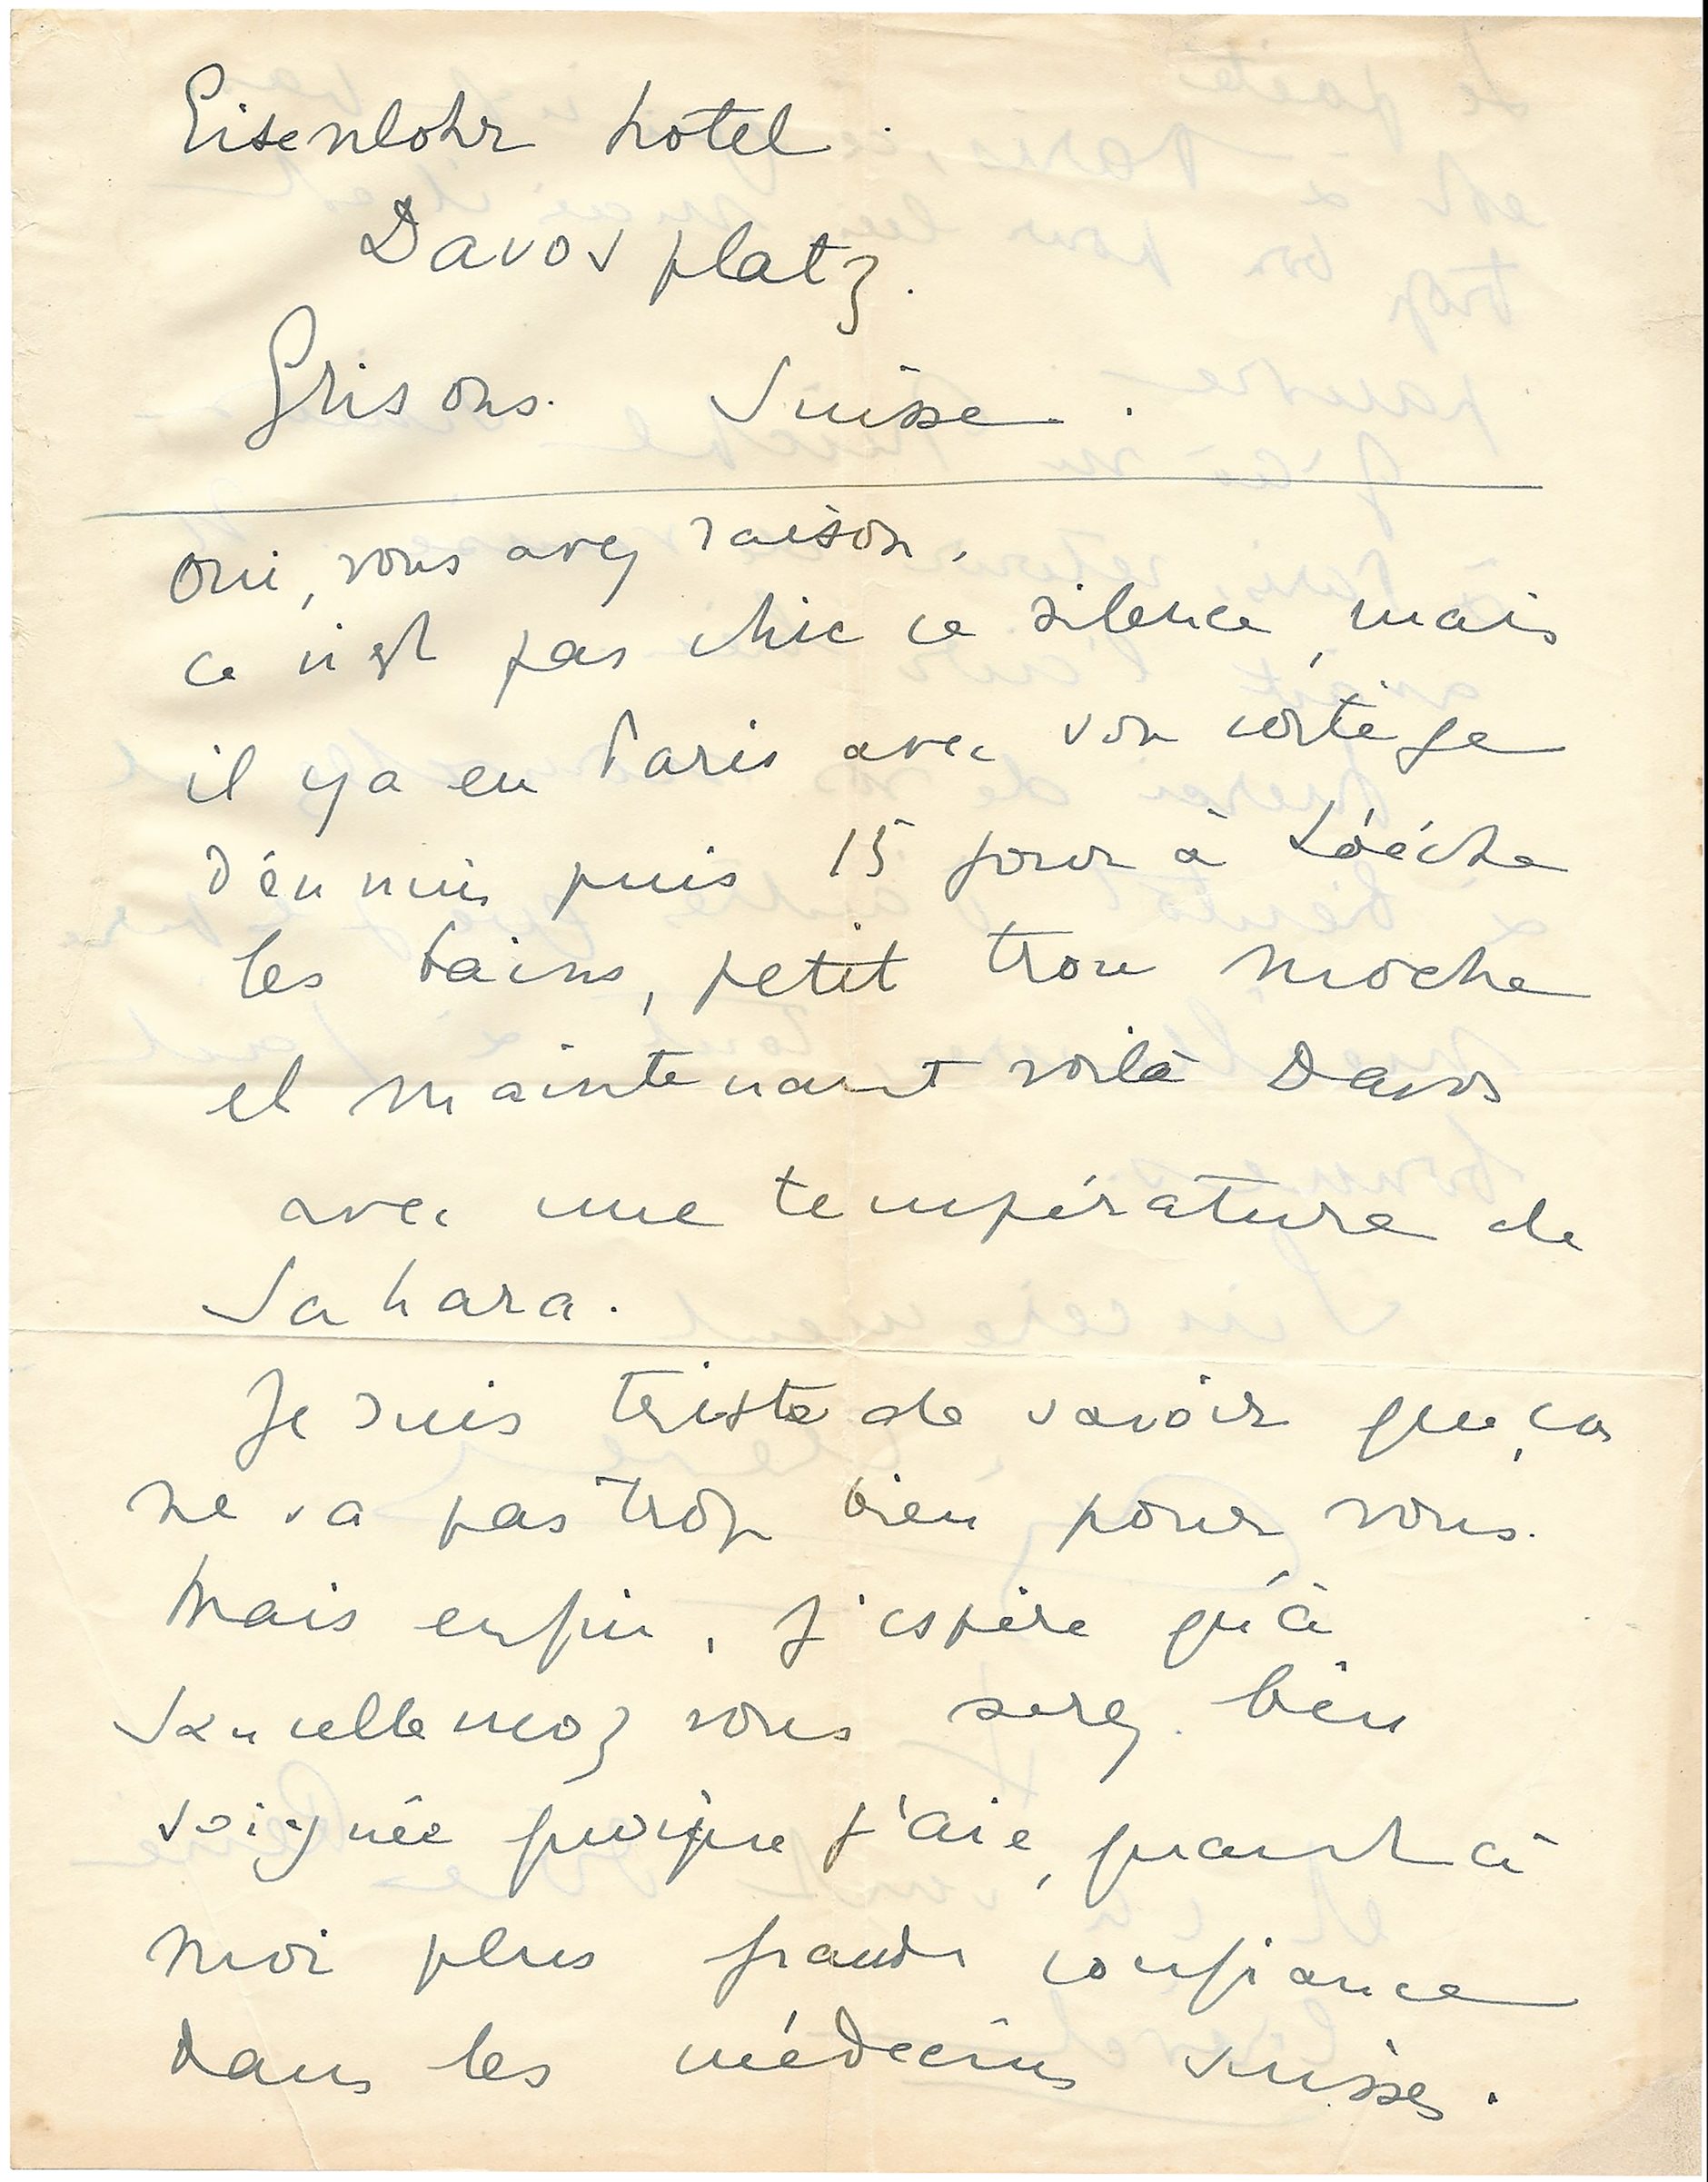 Eisenlohr hotel
Davos platz.
Grisons. Suisse.
Oui, vous avez raison,
ce n'est pas chic ce silence, mais
il y a eu Paris avec son cortège
d'ennuis puis 15 jours à Loéche
les bains, petit trou moche
et maintenant voilà Davos
avec une température de
Sahara.
Je suis triste de savoir que, ça
ne va pas trop bien pour vous.
Mais enfin, j'espère qu'à
Sancellemoz vous serez bien
soignée quoique j'aie, quant à
moi plus grande confiance
dans les médecins suisses.